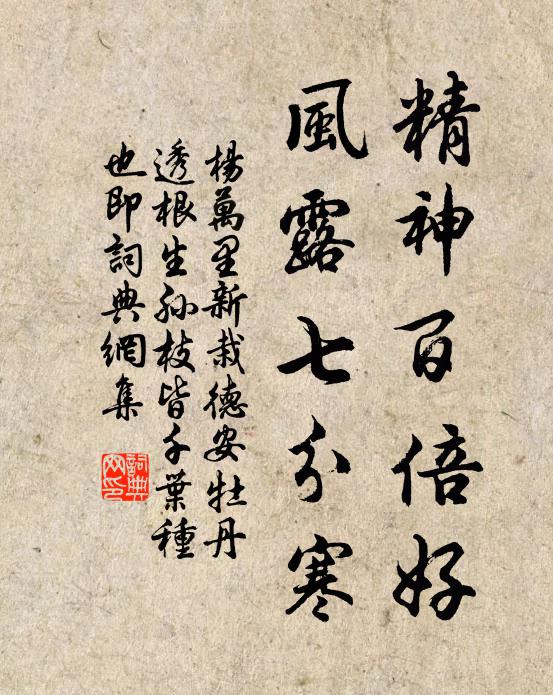 精神百倍好
風露七分寒
楊萬里新栽德安牡丹
透根生孙枝皆千葉種
也即詞典網集
詞典网印